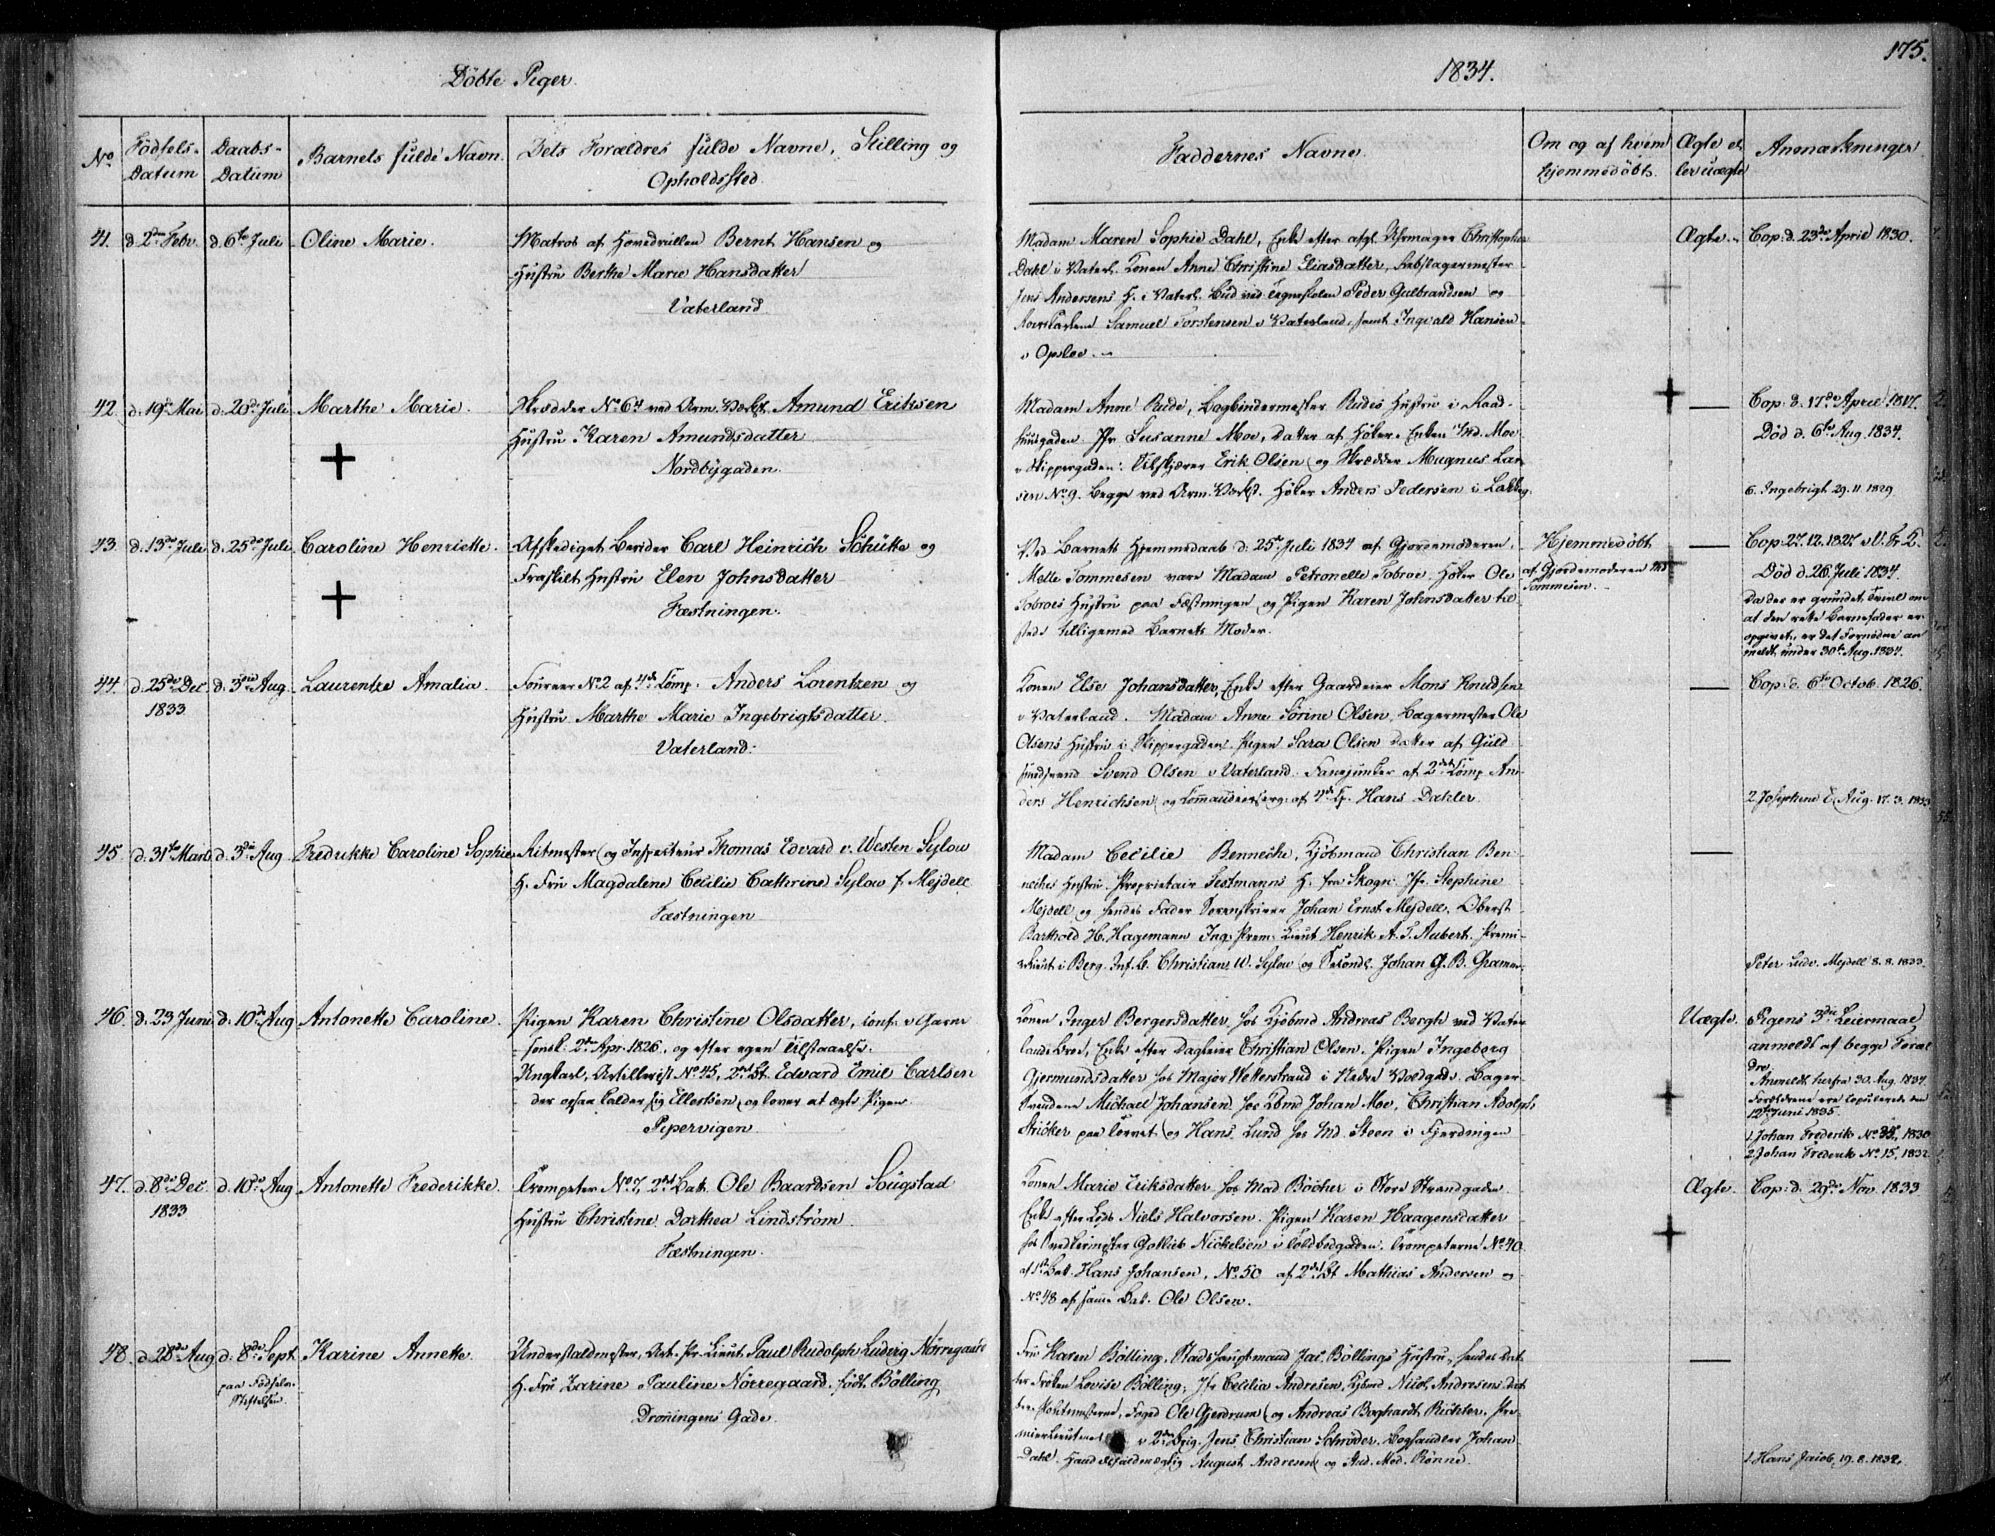 175.
Döbte Piger.
1834.
No
Födsels-
Datum
Daabs-
Datum
Barnets fulde Navn.
Dets Forældres fulde Navne, Stilling og
Opholdssted.
Faddernes Navne.
Om og af hvem
hjemmedöbt.
Ægte el-
ler uægte
Anmærkninger.
41.
d. 2den Febr.
d. 6te Juli
Oline Marie.
Matros af Hovedrullen Bernt Hansen og
Hustru Berthe Marie Hansdatter
Vaterland
Madam Maren Sophie Dahl, Enke efter afg. Uhrmager Christopher
Dahl i Vaterl. Konen Anne Christine Eliasdatter, Rebslagermester
Jens Andersens H. i Vaterl. Bud ved Tegneskolen Peder Gulbrandsen og
Samuel Torstensen i Vaterland, samt Ingvald Hansen
i Opsloe.
Ægte
Cop: d. 23de April 1830.
42.
d. 19de Mai
d. 20de Juli
Marthe Marie.
Skrædder No 64 ved Arm. Værkst. Amund Eriksen
Hustru Karen Amundsdatter
Nordbygaden.
Madam Anne Rude, Bogbindermester Rudes Hustru i Raad-
huusgaden. Jfr Susanne Moe, Datter af Höker-Enken Md. Moe
i Skippergaden. Tilskjærer Erik Olsen og Skrædder Magnus Lar-
sen No 9. begge ved Arm. Værkst. Höker Anders Pedersen i Lakkeg.
Cop: d. 17de April 1817.
Död d. 6te Aug. 1834.
6. Ingebrigt 29.11.1829
43.
d. 13de Juli
d. 25de Juli
Caroline Henriette.
Afskediget Berider Carl Heinrich Schütte og
Fraskilt Hustru Elen Johnsdatter
Fæstningen.
Ved Barnets Hjemmedaab d. 25de Juli 1834 af Gjordemoderen
Mette Tommesen vare Madam Petronelle Tobroe, Höker Ole
Tobroes Hustru paa Fæstningen og Pigen Karen Johnsdatter til-
stede tilligemed Barnets Moder.
Hjemmedöbt
af Gjordemoderen Md
Tommesen.
Cop: 27.12.1827 i V. Fr. K.
Död d. 26 Juli 1834.
Da der er grundet Tvivl om
at den rette Barnefader er
opgivet, er det Fornödne an-
meldt under 30te Aug. 1834.
44.
d. 25de Dec
1833
d. 3die Aug.
Laurentze Amalia.
Foureer No 2 af 4de Comp. Anders Lorentzen og
Hustru Marthe Marie Ingebrigtsdatter.
Vaterland.
Konen Else Johansdatter, Enke efter Gaardeier Mons Knudsen
i Vaterland. Madam Anne Sörine Olsen, Bagermester Ole
Olsens Hustru i Skippergaden. Pigen Sara Olsen Datter af Guld-
smedsvend Svend Olsen i Vaterland. Fanejunker af 2det Comp. An-
ders Henrichsen og Commandeersergt. af 4de Cp. Hans Dahler
Cop: d. 6te Octob. 1826.
2. Josephine E. Aug. 17.3.1833
45.
d. 31te Marts
d. 3die Aug.
Fredrikke Caroline Sophie
Ritmester og Inspecteur Thomas Edvard v. Westen Sylow
H. Fru Magdalene Cecilie Cathrine Sylow f. Mejdell
Fæstningen
Madam Cecilie Bennecke, Kjöbmand Christian Ben-
neckes Hustru. Proprietair Sestmanns H. fra Skogn. Jfr. Stephine
Mejdell og hendes Fader Sorenskriver Johan Ernst Mejdell. Oberst
Barthold H. Hagemann Ing. Prem. Lieut Henrik A. T. Aubert. Premi-
Lieut i Berg. Inf. B. Christian W. Sylow og Secondl. Johan G. B. Gramer.
Peter Ludv. Mejdell 8.8.1833.
46.
d. 23 Juni
d. 10de Aug
Antonette Caroline.
Pigen Karen Christine Olsdatter, conf. i Garni-
sonsk. 2den Apr. 1826, og efter egen Tilstaaelse:
Ungkarl, Artillerist No 45, 2det Bt. Edvard Emil Carlsen
der ogsaa kalder sig Ellertsen, og lover at ægte Pigen.
Pipervigen.
Konen Inger Bergersdatter hos Kjöbmd Andreas Bergh ved Vater-
lands Broe, Enke efter Dagleier Christian Olsen. Pigen Ingeborg
Gjermundsdatter hos Major Wetterstrand i Nedre Voldgade. Bager-
svendene Michael Johansen hos Kbmd Johan Moe, Christian Adolph
Stricker paa Torvet og Hans Lund hos Md. Steen i Fjerdingen
Uægte.
Pigens 3die Leiermaal
anmeldt af begge Foræl-
dre.
Anmeldt herfra 30. Aug. 1834.
Forældrene ere copulerede den
12te Juni 1835.
1. Johan Frederik No 35, 1830
2. Johan Frederik No 15, 1832.
47.
d. 8de Dec
1833
d. 10de Aug
Antonette Frederikke.
Trompeter No 7, 2det Bat. Ole Baardsen Sougstad
Hustru Christine Dorthea Lindström.
Fæstningen.
Konen Marie Eriksdatter hos Mad Böcher i Store Strandgaden.
Enke efter Lods Niels Halvorsen. Pigen Karen Haagensdatter
hos Snedkermester Gotlieb Nickelsen i Toldbodgaden. Trompeterne No 40
af 1ste Bat. Hans Johansen, No 50 af 2det Bt Mathias Andersen og
No 48 af samme Bat. Ole Olsen.
Ægte.
Cop: d. 29de Nov. 1833
48.
d. 28de Aug
d. 8de Sept.
paa Födsels-
Stiftelsen
Karine Annette.
Understaldmester, Art. Pr. Lieut. Paul Rudolph Ludvig Nörregaard
H. Fru Zarine Pauline Nörregaard, födt Bölling
Dronningens Gade.
Fru Karen Bölling, Stadshauptmand Jac. Böllings Hustru, hendes Dat-
ter Fröken Lovise Bölling; Jfr Cecilia Andresen, Kjöbmd Nicol. Andresens Dat-
ter. Foged Ole Gjerdrum og Andreas Boghardt Richter. Pre-
mierlieutenant i 2den Brig. Jens Christian Schröder. Boghandler Johan
Dahl. August Andresen og Stud. Med. Rönne.
1. Hans Jacob, 19.8.1832.